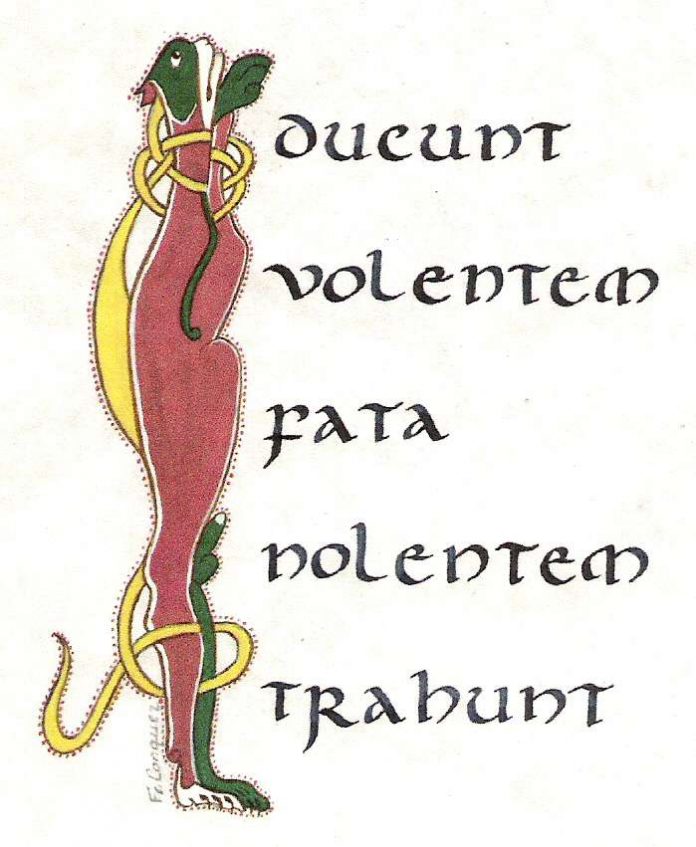 ducunt
volentem
fata
nolentem
trahunt